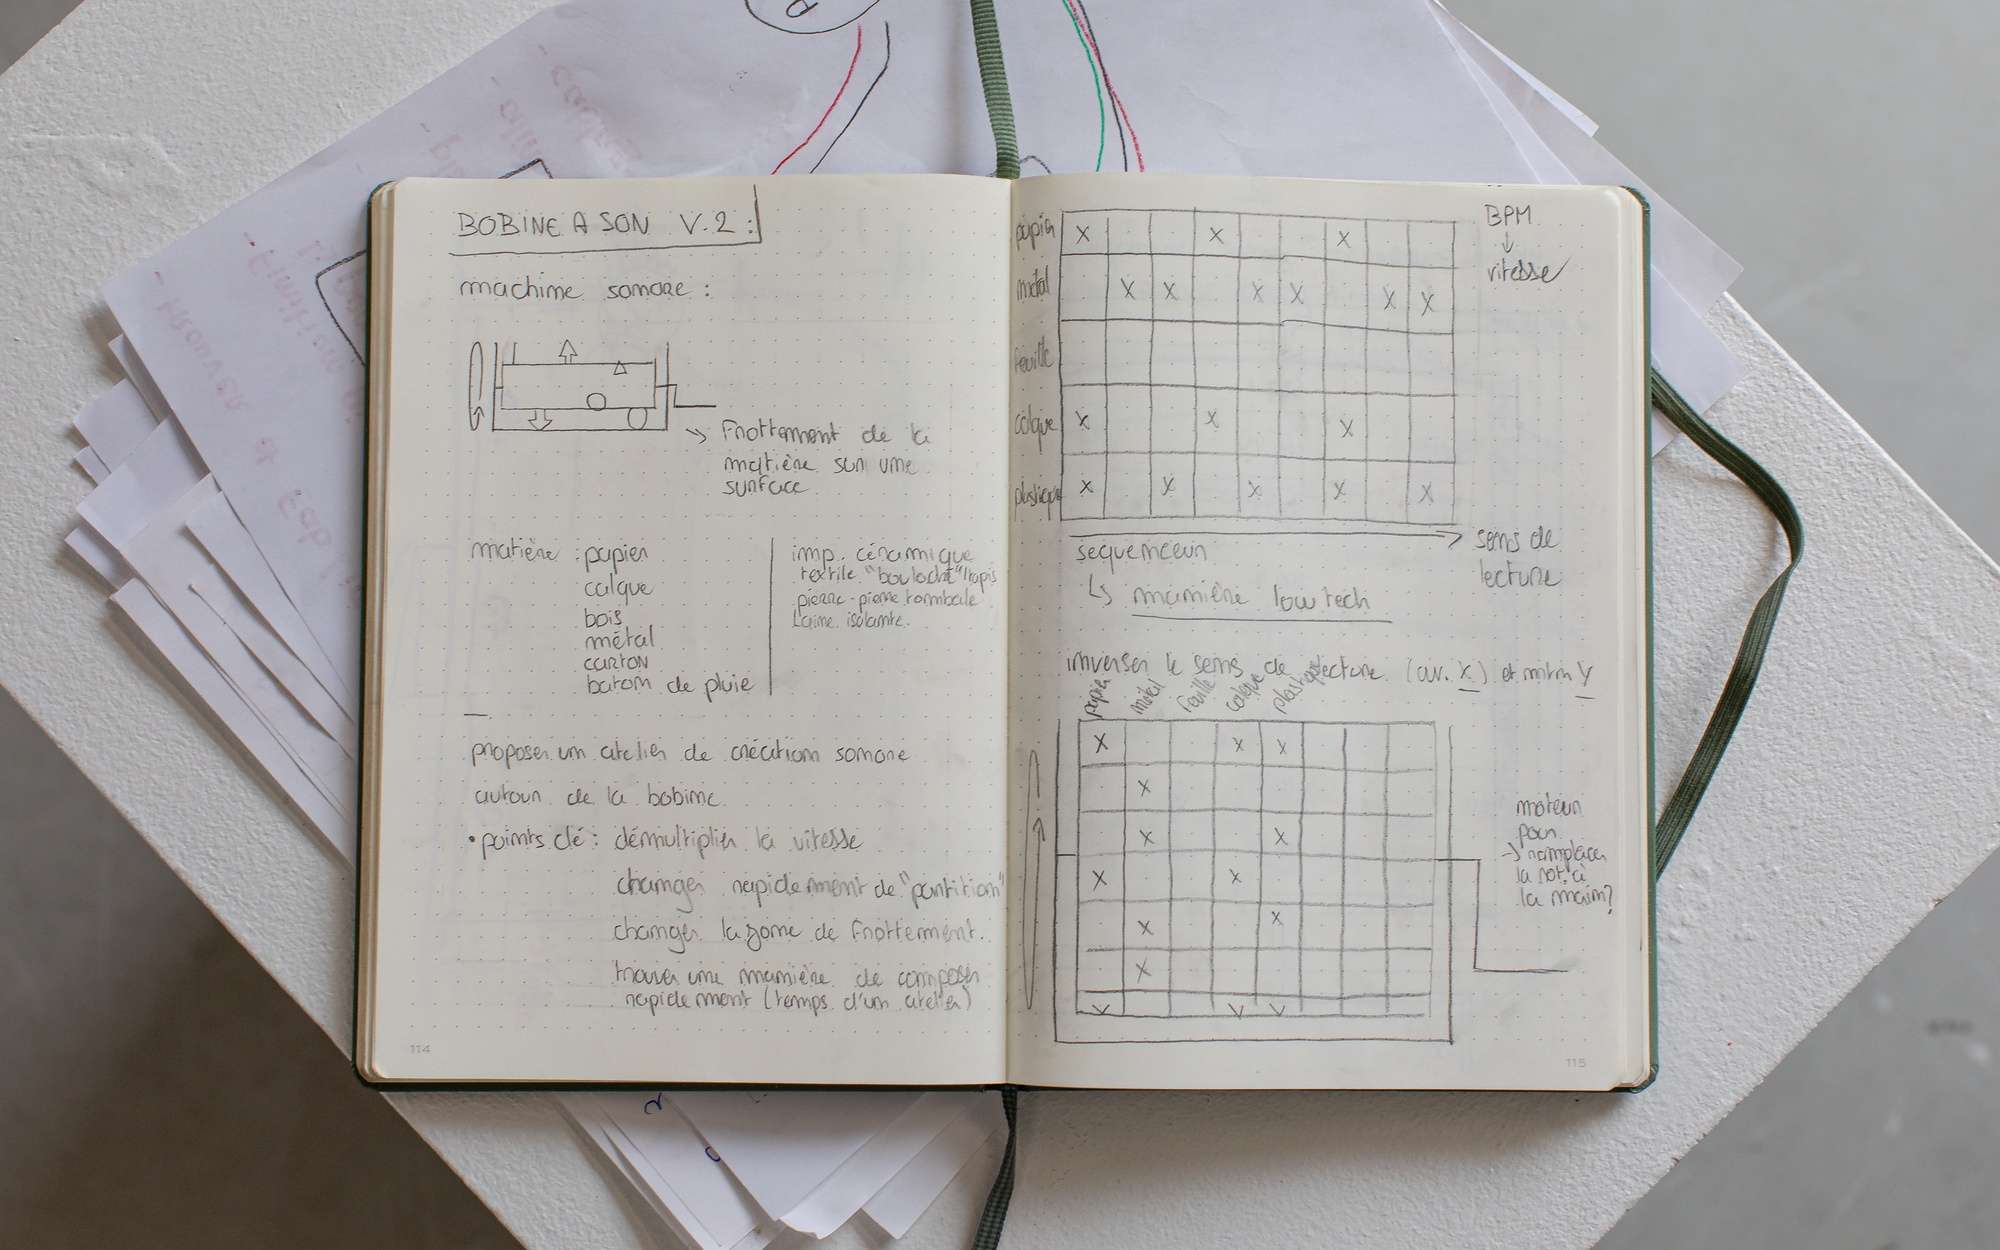 BOBINE A SON V.2 :
machine sonore :
↳ Frottement de la
matière sur une
surface
matière : papier
calque
bois
métal
carton
baton de pluie
imp. céramique
textile "bouloché"/tapis
pierre - pierre tombale
Laine isolante.
proposer un atelier de création sonore
autour de la bobine.
• points clé : démultiplier la vitesse
changer rapidement de "partition"
changer la zone de frottement.
trouver une manière de composer
rapidement (temps d'un atelier)
114
papier X X X
métal X X X X X X
feuille
calque X X X
plastique X X X X X
BPM
↓
vitesse
sens de
lecture
sequenceur
↳ manière low tech
inverser le sens de lecture (av. X) et mtn Y
papier métal feuille calque plastique
X X X
X
X X
X X
X X
X
moteur
pour
→ remplacer
la rot. à
la main?
115